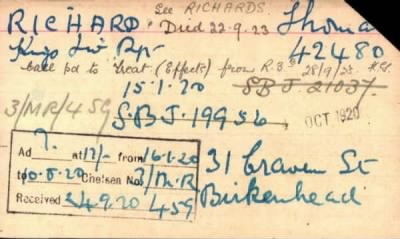 See RICHARDS
RICHARD. Died 22.9.23 Thomas
42480
Bale pd to Treas. (Effects) from R.B.S 28/9/25.
15.1.20 S.B.J. 21037.
3/MR/459 S.B.J. 19956, OCT 1920
Ad 7. at 12/- from 16.1.20
to Chelsea No 3/M.R
Received 24.9.20 459
31 Craven St
Birkenhead